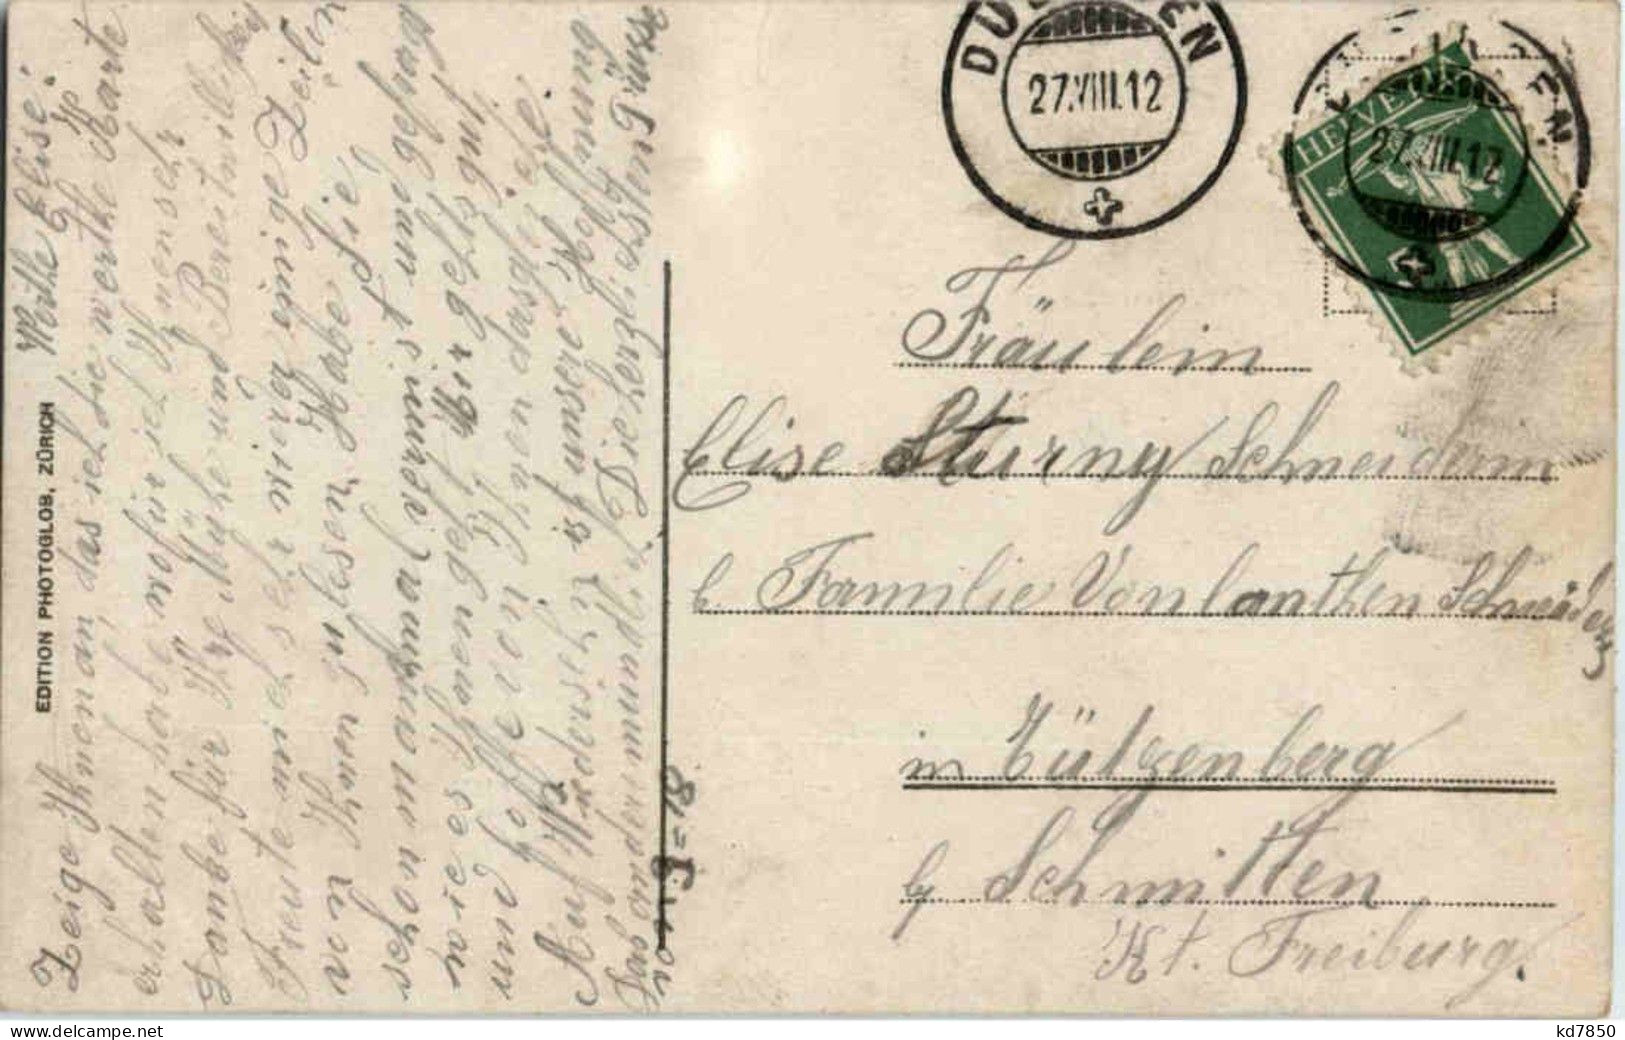 Werthe Elise
Zeige Ihnen an, das ich die werthe Karte
erhalten habe wofür ich Ihnen sehr
Danke für Ihre Mühe und Bereitwilligkeit
Freute mich sehr einige Zeilen
von Ihnen zu lesen, Habe Sie
schon
wie es Ihnen geht Mir geht's gut
und hoffe von Ihnen dasselbe.
Auf Wiedersehen ist unsere Hoffnung
Das andere mündlich Die herzlichsten Grüsse
EDITION PHOTOGLOB, ZÜRICH
DU EN
27.VIII.12
HELVE
EN
27.VIII.12
Fräulein
Elise Sturny Schneiderin
b Familie Vonlanthen Schneiders
in Lützenberg
by Schmitten
Kt. Freiburg.
kd7850